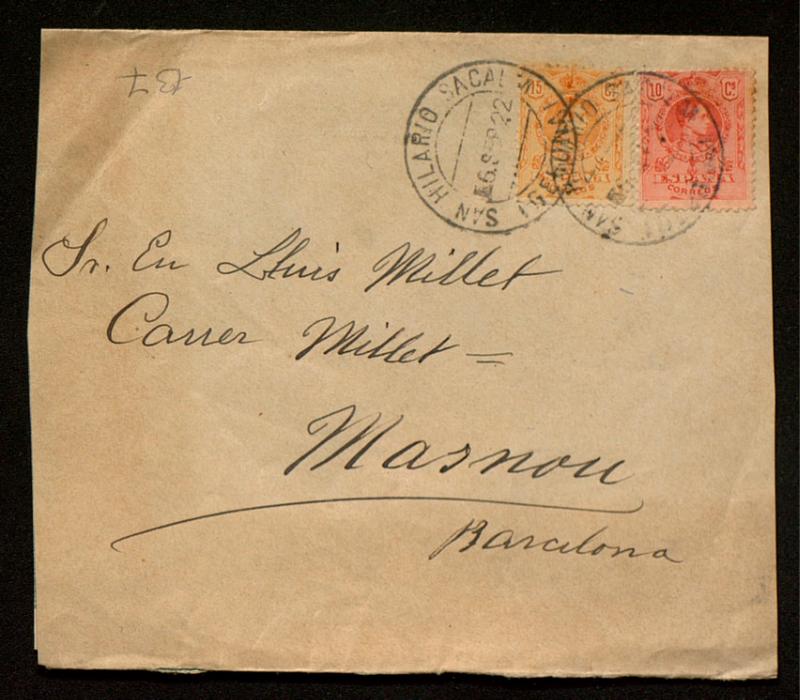 137
SAN HILARIO SACALM
(GERONA)
6.SEP.22
15 Cs
10 Cs
ESPAÑA
CORREOS
Sr. En Lluis Millet
Carrer Millet =
Masnou
Barcelona